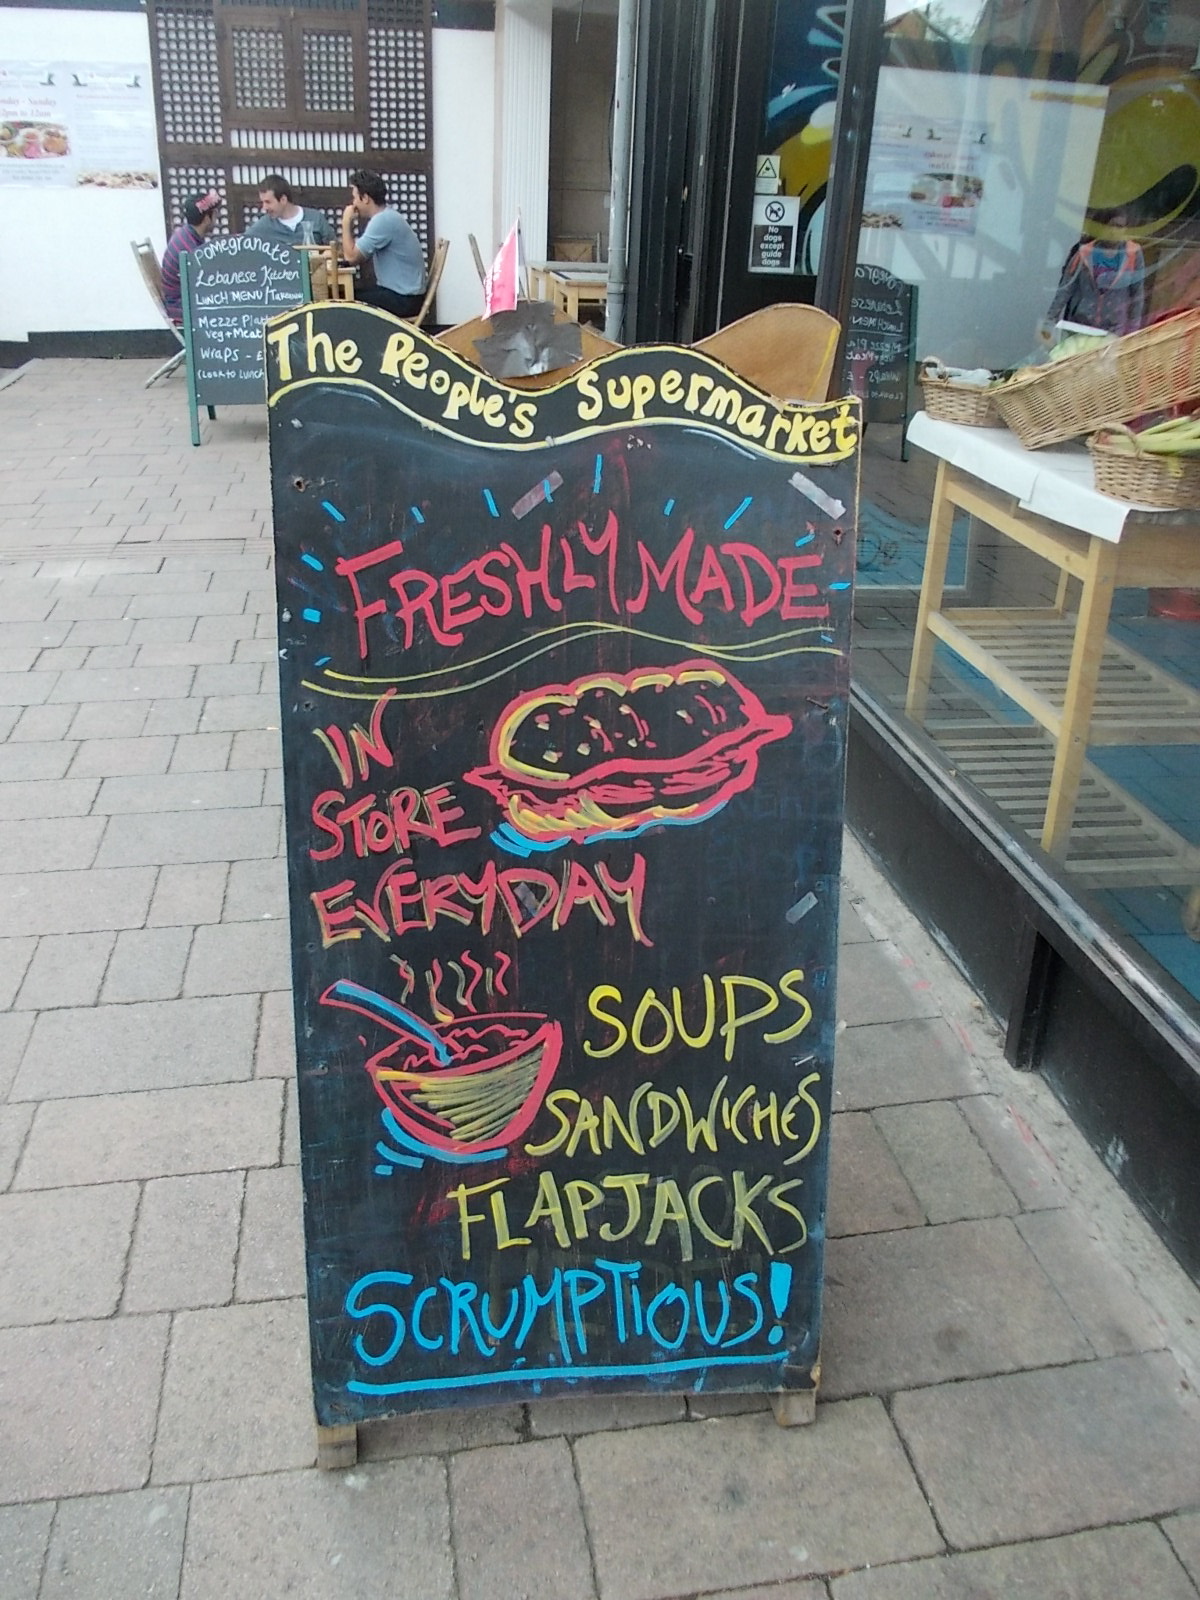 The People's Supermarket
FRESHLY MADE
IN
STORE
EVERYDAY
SOUPS
SANDWICHES
FLAPJACKS
SCRUMPTIOUS!
Pomegranate
Lebanese Kitchen
LUNCH MENU/Takeaway
Mezze Plat
veg + Meat
Wraps - E
No
dogs
except
guide
dogs